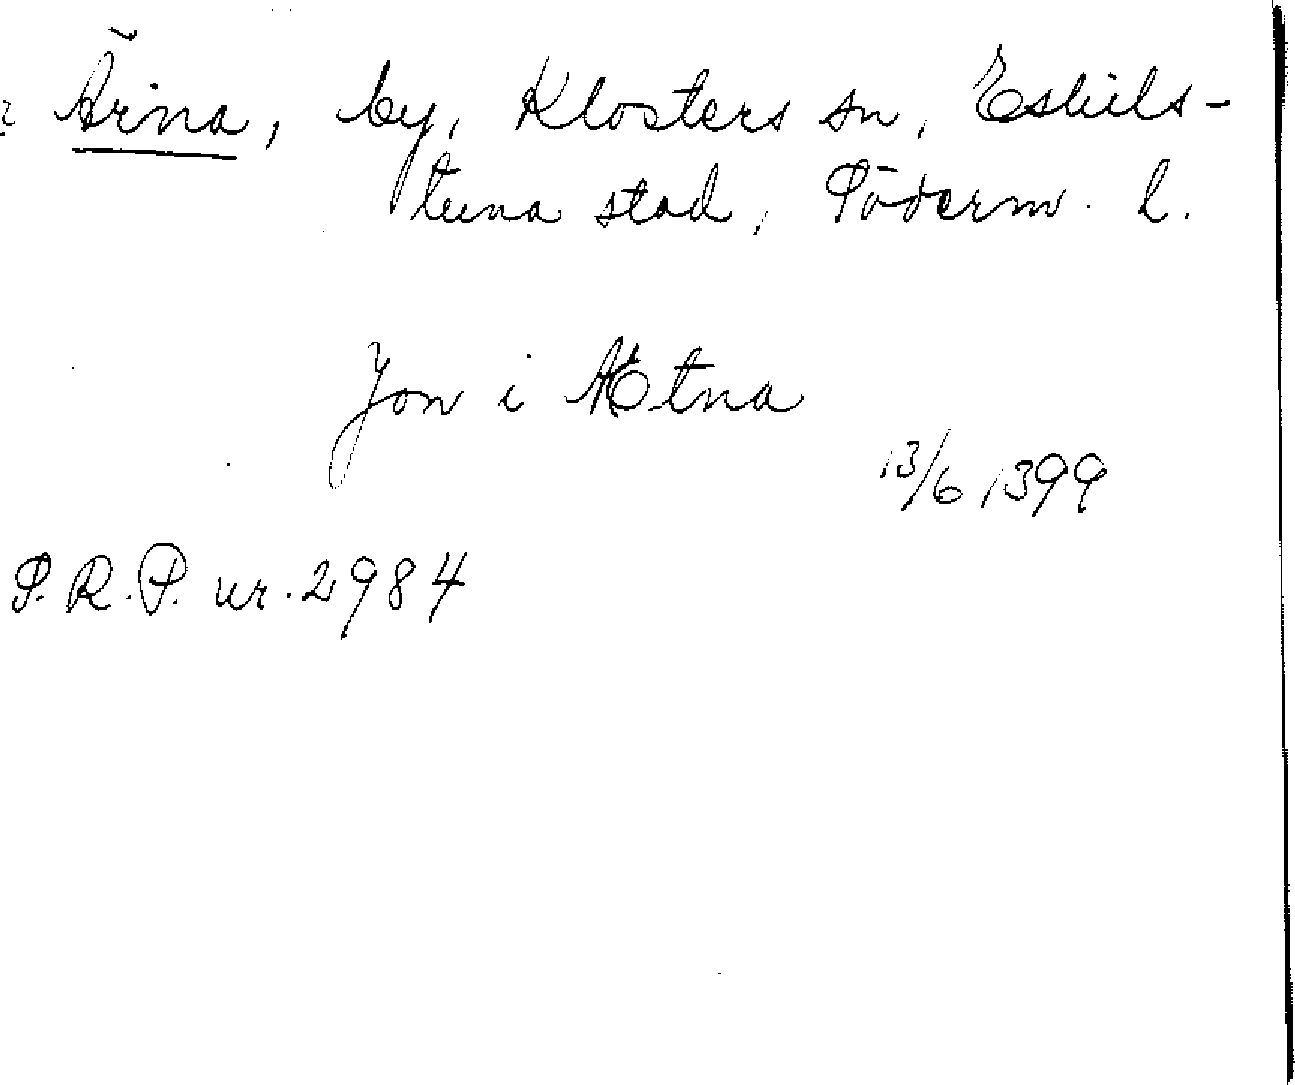 Ärna, by, Klosters sn, Eskils-
tuna stad, Söderm. l.
Jon i Ætna
13/6 1399
S.R.P. nr. 2984